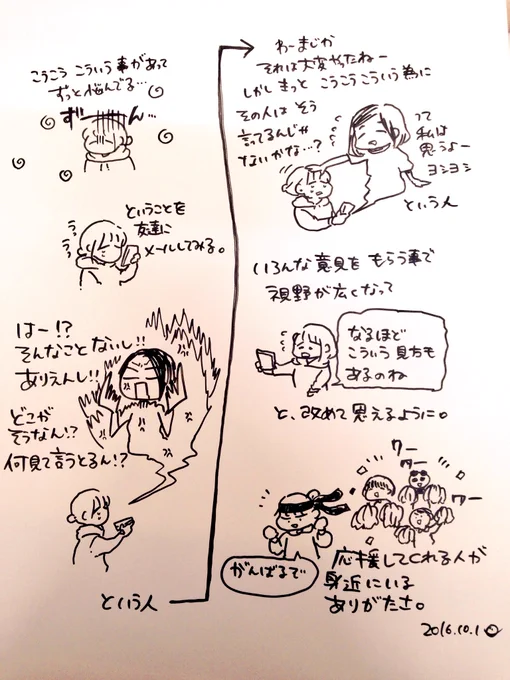 こうこう こういう事があって
ずっと悩んでる…
ず ん…
ということを
友達に
メールしてみる。
はー!?
そんなことないし!!
ありえんし!!
どこが
そうなん!?
何見て言うとるん!?
という人
わーまじか
それは大変やったねー
しかし きっと こうこうこういう為に
その人は そう
言ってるんじゃ
ないかな…?
って
私は
思うよー
ヨシヨシ
という人
いろんな意見を もらう事で
視野が広くなって
なるほど
こういう 見方も
あるのね
と、改めて思えるように。
ワー
ワー
がんばるで
応援してくれる人が
身近にいる
ありがたさ。
2016.10.1